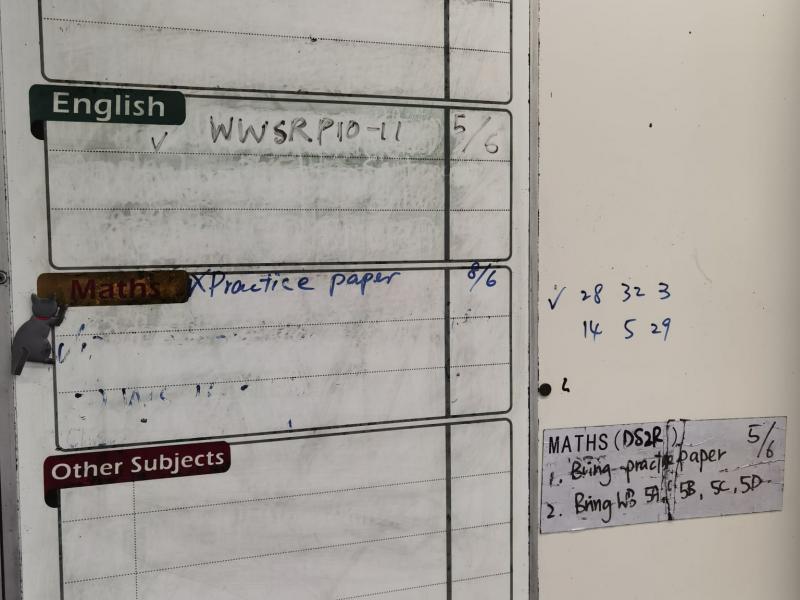 English
✓ WWSRP10-11 5/6
Maths XPractice paper 8/6
✓ 28 32 3
14 5 29
MATHS (DS2R) 5/6
1. Bring practice paper
2. Bring WB 5A, 5B, 5C, 5D
Other Subjects